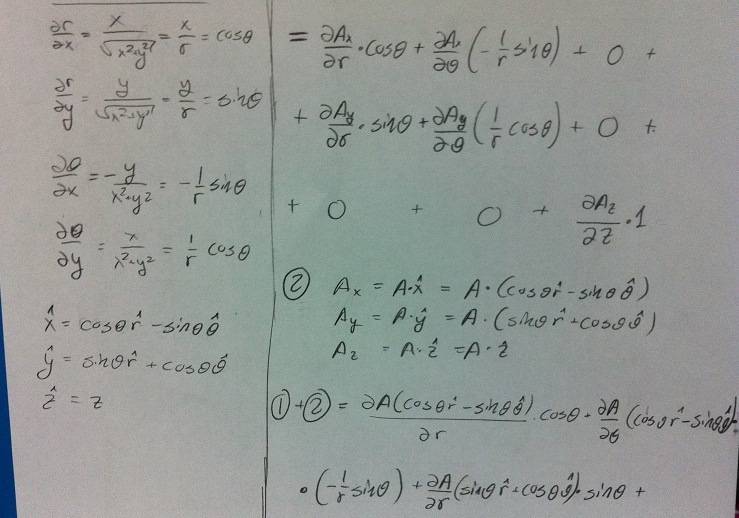 ∂r/∂x = x/√(x²+y²) = x/r = cosθ
∂r/∂y = y/√(x²+y²) = y/r = sinθ
∂θ/∂x = -y/(x²+y²) = -1/r sinθ
∂θ/∂y = x/(x²+y²) = 1/r cosθ
x̂ = cosθ r̂ - sinθ θ̂
ŷ = sinθ r̂ + cosθ θ̂
ẑ = z
= ∂Ax/∂r · cosθ + ∂Ax/∂θ (-1/r sinθ) + 0 +
+ ∂Ay/∂r · sinθ + ∂Ay/∂θ (1/r cosθ) + 0 +
+ 0 + 0 + ∂Az/∂z · 1
② Ax = A·x̂ = A·(cosθ r̂ - sinθ θ̂)
Ay = A·ŷ = A·(sinθ r̂ + cosθ θ̂)
Az = A·ẑ = A·ẑ
①+② = ∂A(cosθ r̂ - sinθ θ̂)/∂r · cosθ + ∂A/∂θ (cosθ r̂ - sinθ θ̂)·
· (-1/r sinθ) + ∂A/∂r (sinθ r̂ + cosθ θ̂) · sinθ +